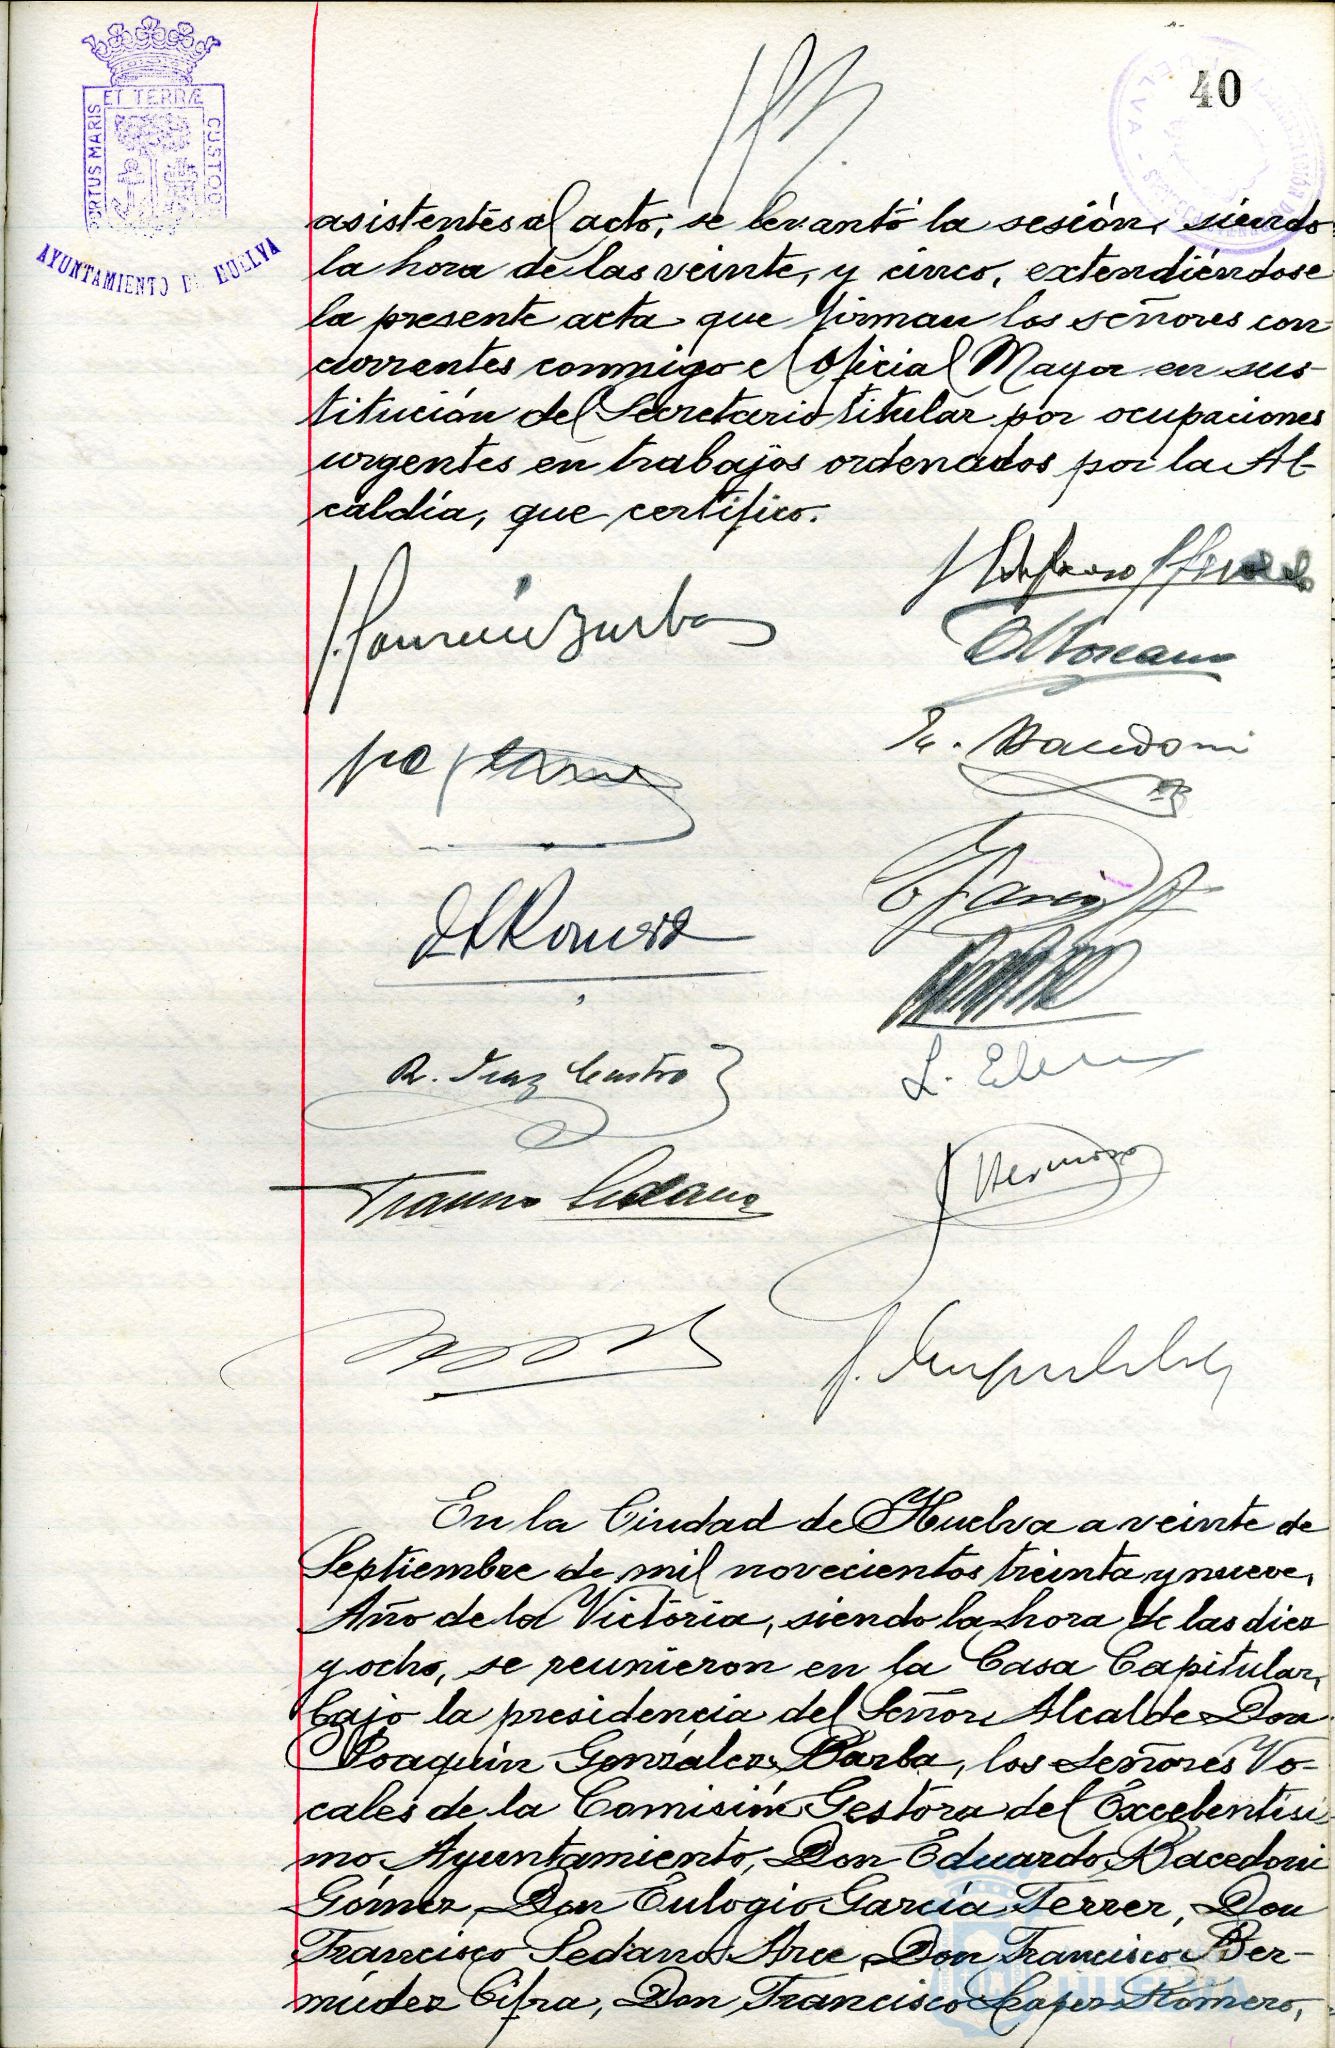 40
ET TERRÆ
PORTUS MARIS
CUSTOD
AYUNTAMIENTO DE HUELVA
asistentes al acto, se levantó la sesión, siendo
la hora de las veinte, y cinco, extendiéndose
la presente acta que firman los señores con
currentes conmigo el Oficial Mayor en sus-
titución del Secretario titular por ocupaciones
urgentes en trabajos ordenados por la Al-
caldía, que certifico.
R. Diaz Castro
L.
Hermoso
En la Ciudad de Huelva a veinte de
Septiembre de mil novecientos treinta y nueve,
Año de la Victoria, siendo la hora de las diez
y ocho, se reunieron en la Casa Capitular,
bajo la presidencia del Señor Alcalde Don
Joaquín González Barba, los Señores Vo-
cales de la Comisión Gestora del Excelentísi
mo Ayuntamiento, Don Eduardo Bacedoni
Gómez, Don Eulogio García Ferrer, Don
Francisco Sedano Arce, Don Francisco Ber-
múdez Cifra, Don Francisco Romero,
HUELVA